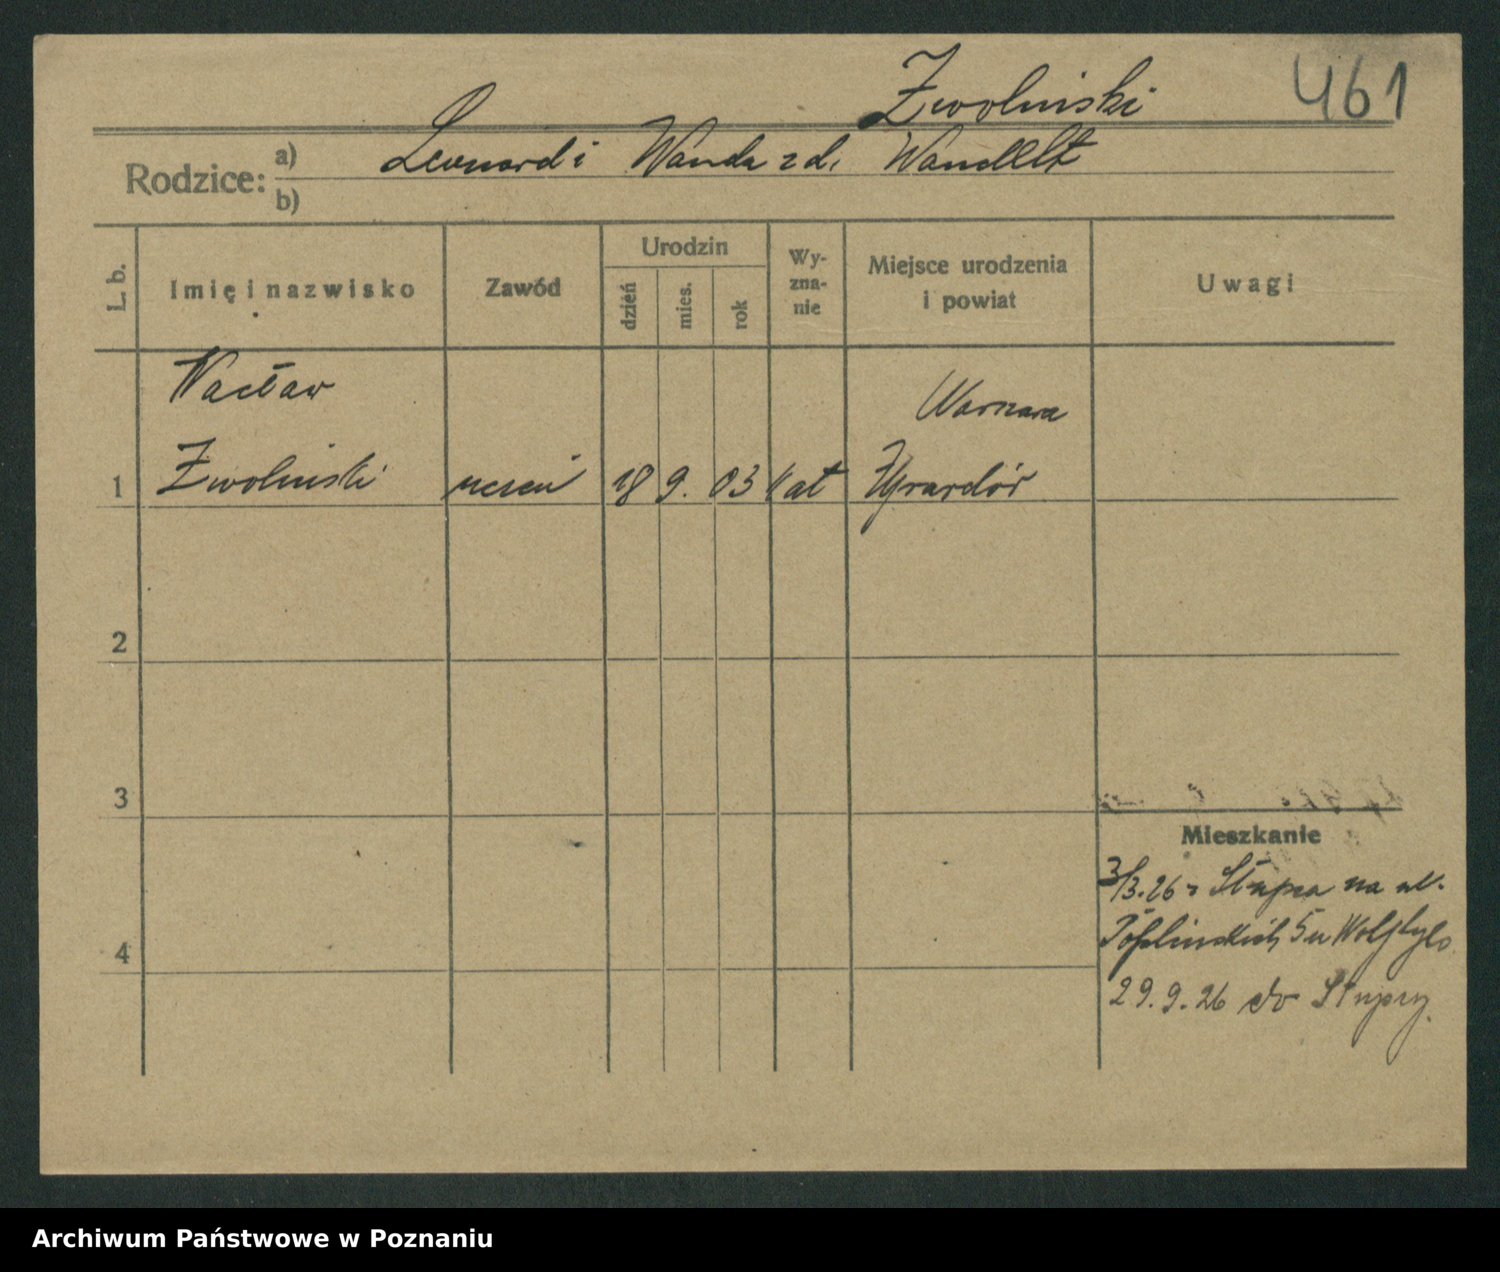 Zwoliński 461
Rodzice: a) Leonard i Wanda z d. Wandelt
b)
L. b. Imię i nazwisko Zawód Urodzin dzień mies. rok Wy-zna-nie Miejsce urodzenia i powiat Uwagi
Wacław Warszawa
1 Zwoliński uczeń 18 9. 03 kat Żyrardów
2
3
Mieszkanie
3/3.26 z Słupca na ul.
4
5 u
29.9.26 do Słupcy.
Archiwum Państwowe w Poznaniu